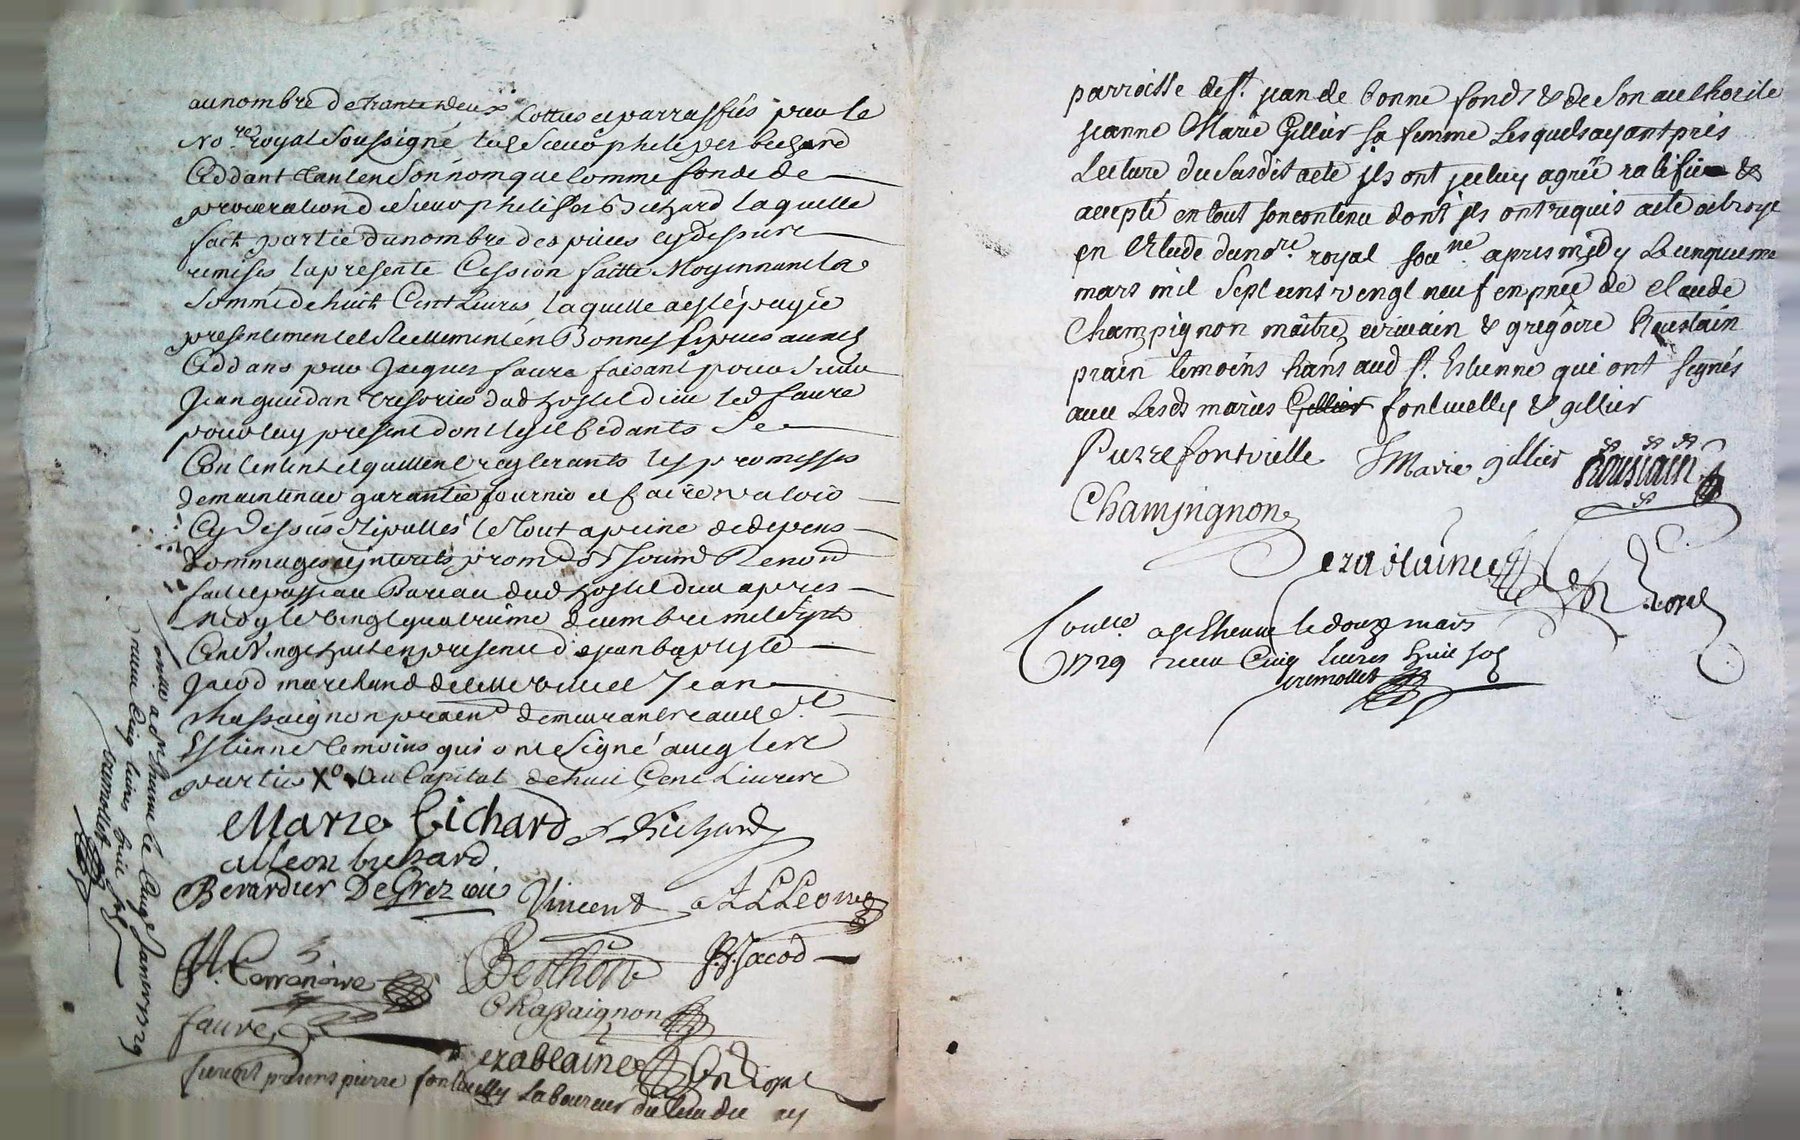 au nombre de trante deux Cottées et parraffées par le
No.re royal Soussigné led Sieur philipes bichard
Ceddant tant en Son nom que comme fondé de
procuration de Sieur philipes Bichard laquelle
fait partie du nombre des pièces cy dessure
remises la presente Cession faitte Moyennant la
Somme de huit Cent Livres laquelle a esté payée
presentement et Reellement en Bonnes Espèces auxd
Ceddans par Jacques faure faisant pour Sieur
Jean guédan tresorier dud hostel dieu led faure
pour luy present dont lesd Cedants Se
Contentent et quittent les promesses
de maintenue garantie fournir et faire valoir
Cy Dessus Stipullés le tout a peine de depens
Dommages interets prom Soumd Renond
fait et passé au Bureau dud hostel dieu apres
Midy le vingt quatrième decembre mil Sept
Cent Vingt huit en presence de jean baptiste
Jacod marchand de cette ville et Jean
Chassaignon praen.d demeurant ville St
Estienne temoins qui ont Signé avec les
parties X.o Au Capital de huit Cent Livres
Marie bichard Bichard
alleon bichard
Berardier De Grezieu Vincent ALLéon
Terranoire Berthon JB Jacod
Chassaignon
faure
ezablaine Nre Royal
furent presens pierre fontvielly Laboureur du lieu de
Controllé a St Etienne le Cinq Janvier 1729
receu Cinq livres huit sols
tremollet
parroisse de St. jean de bonne fonds & de Son authorite
jeanne Marie Gillier Sa femme Lesquels ayant pris
Lecture du Susdit acte ils ont iceluy agréé ratifié &
accepté en tout Son contenu dont ils ont requis acte octroyé
en l'Etude du no.re royal sou.né apres midy Le cinquieme
mars mil Sept cens vingt neuf en pnce de Claude
Champignon maître ecrivain & gregoire Roustain
praen temoins hans aud St. Estienne qui ont Signés
avec Lesds mariés Gillier fontvielly & gillier
Pierre fontvielle J Marie gillier Roustain
Champignon
ezablaine Nre Royal
Con.llé a St Etienne le douze mars
1729 receu Cinq livres huit sols
tremollet